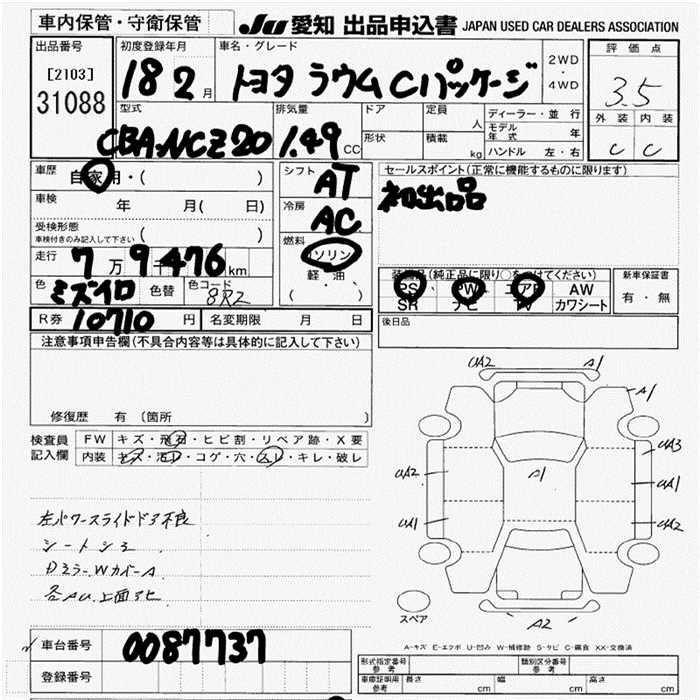 車内保管・守衛保管
JU 愛知 出品申込書 JAPAN USED CAR DEALERS ASSOCIATION
出品番号
[2103]
31088
初度登録年月
18 2 月
車名・グレード
トヨタ ラウム Cパッケージ
2WD
・
4WD
評価点
3.5
外装 内装
C C
型式
CBA-NCZ20
排気量
1.49 CC
ドア
形状
定員 人
積載 kg
ディーラー・並行
モデル年式 年
ハンドル 左・右
車歴 自家用・( )
車検 年 月( 日)
受検形態
車検付きのみ記入して下さい ( )
走行 7万9千476km
色 ミズイロ 色替 色コード 8R2
R券 10710 円 名変期限 月 日
シフト AT
冷房 AC
燃料 ガソリン
軽・油
( )
セールスポイント(正常に機能するものに限ります)
初出品
装備品(純正品に限り○をつけてください)
PS PW エアB AW
SR ナビ TV カワシート
新車保証書
有・無
後日品
注意事項申告欄(不具合内容等は具体的に記入して下さい)
修復歴 有(箇所 )
検査員記入欄
FW キズ・飛石・ヒビ割・リペア跡・X要
内装 キズ・汚レ・コゲ・穴・スレ・キレ・破レ
左パワースライドドア不良
シートシミ
Dミラー、WカバーA
各AU、上面アヒ
UA2 A1
A1
UA3
UA2 A1 UA1
UA1 UA2
A2
スペア
A-キズ E-エクボ U-凹み W-補修跡 S-サビ C-腐食 XX-交換済
車台番号 0087737
登録番号
形式指定番号 参考 類別区分番号 参考
車庫証明用 参考 長さ cm 幅 cm 高さ cm